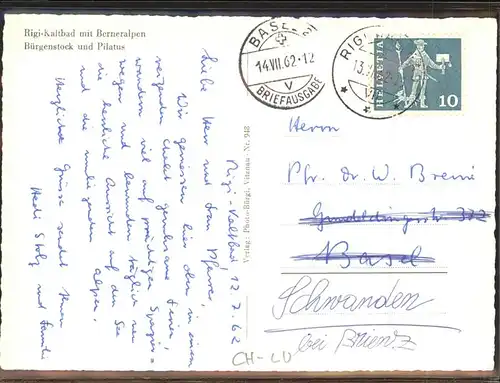 Rigi-Kaltbad mit Berneralpen
Bürgenstock und Pilatus
Rigi-Kaltbad 12.7.62
Liebe Herr und Frau Pfarrer,
Wir geniessen hier oben in einem
reizenden Chalet geruhsame Ferien,
wandern viel auf prächtigen Spazier-
wegen und bewundern täglich neu
die herrliche Aussicht auf den See
und die umliegenden Alpen.
Herzliche Grüsse sendet Ihnen
Hedi Stolz und Familie
Verlag: Photo-Bürgi, Vitznau-Nr. 948
BASEL
14.VII.62-12
V
BRIEFAUSGABE
RIGI
13.
HELVETIA
10
Herrn
Pfr. Dr. W. Bremi
Gundeldingerstr. 322
Basel
Schwanden
bei Brienz
CH-LU